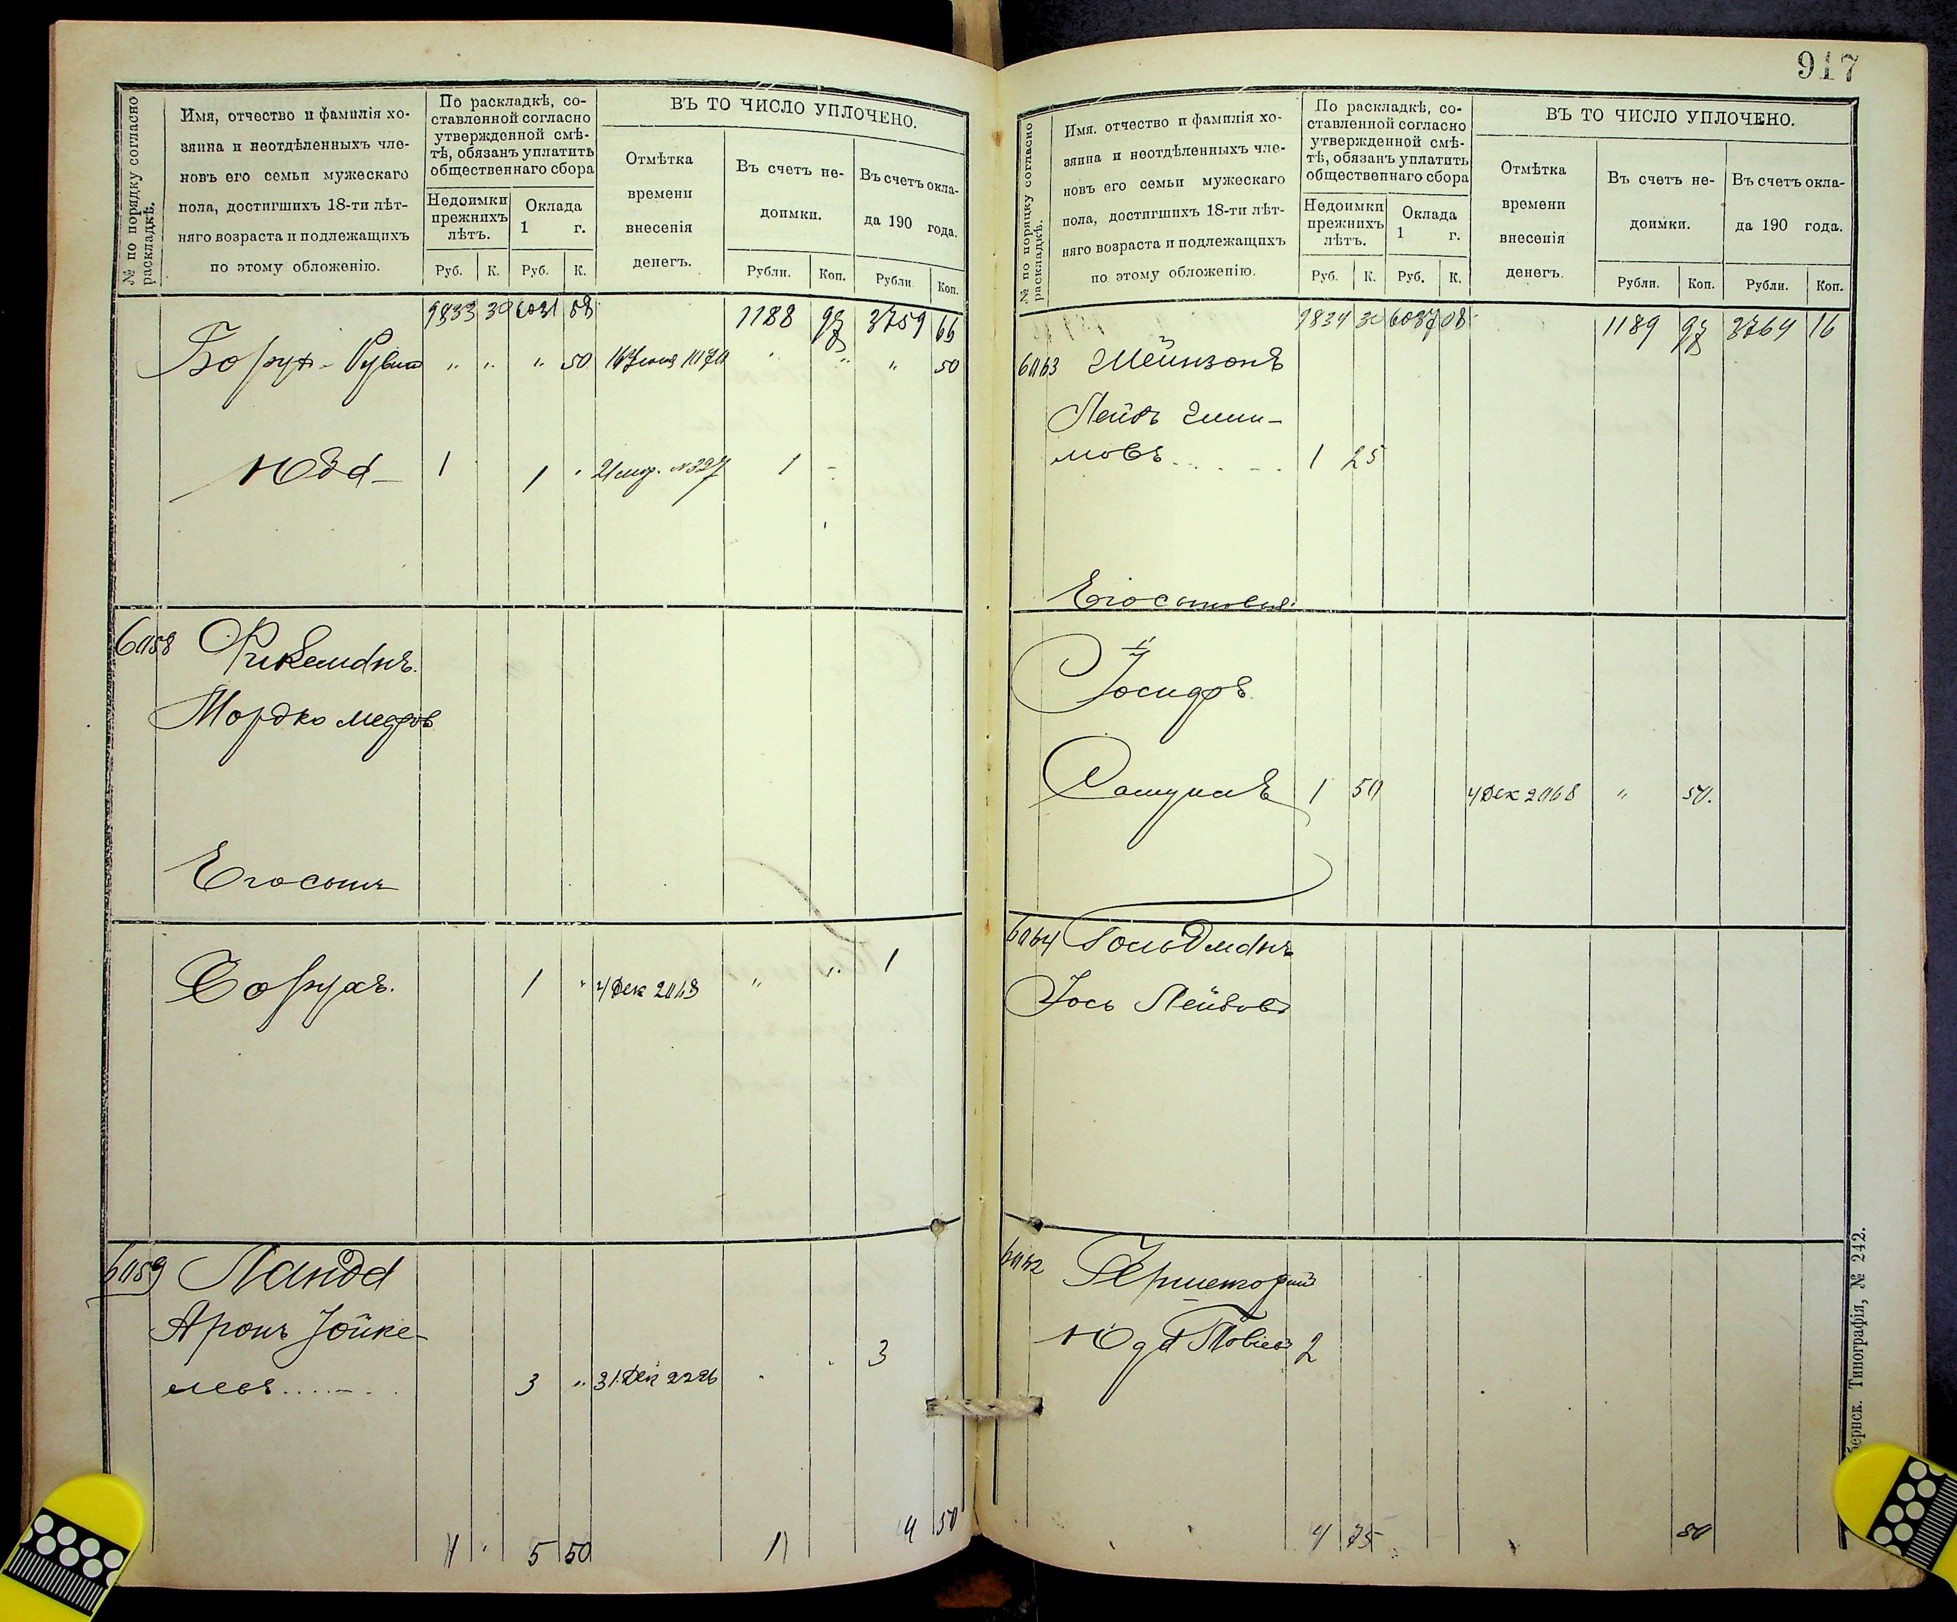 917
№ по порядку согласно раскладкѣ.
Имя, отчество и фамилія хо-
зяина и неотдѣленныхъ чле-
новъ его семьи мужескаго
пола, достигшихъ 18-ти лѣт-
няго возраста и подлежащихъ
по этому обложенію.
По раскладкѣ, со-
ставленной согласно
утвержденной смѣ-
тѣ, обязанъ уплатить
общественнаго сбора
Недоимки
прежнихъ
лѣтъ.
Оклада
1 г.
Руб. К. Руб. К.
ВЪ ТО ЧИСЛО УПЛОЧЕНО.
Отмѣтка
времени
внесенія
денегъ.
Въ счетъ не-
доимки.
Въ счетъ окла-
да 190 года.
Рубли. Коп. Рубли. Коп.
9833 30 6031 58 1188 97 3759 66
Борух-Рувин " " " 50 " 50
Юда 1 1 21 мар. № 327 1 -
6058
Мордко
Борухъ. 1 " 4 Дек 2068 " " 1
6059 Ланда
Аронъ Іойке-
левъ 3 " 31 Дек 2226 3
5 50 4 50
№ по порядку согласно раскладкѣ.
Имя, отчество и фамилія хо-
зяина и неотдѣленныхъ чле-
новъ его семьи мужескаго
пола, достигшихъ 18-ти лѣт-
няго возраста и подлежащихъ
по этому обложенію.
По раскладкѣ, со-
ставленной согласно
утвержденной смѣ-
тѣ, обязанъ уплатить
общественнаго сбора
Недоимки
прежнихъ
лѣтъ.
Оклада
1 г.
Руб. К. Руб. К.
ВЪ ТО ЧИСЛО УПЛОЧЕНО.
Отмѣтка
времени
внесенія
денегъ.
Въ счетъ не-
доимки.
Въ счетъ окла-
да 190 года.
Рубли. Коп. Рубли. Коп.
9834 30 6037 08 1189 97 3764 16
6063 Шейнзонъ
Лейбъ
мовъ 1 25
1 50 4 Дек 2068 " 50.
6064 Гольдманъ
Іось Лейбовъ
6062
Юда 2
4 75 50
бернск. Типографія, № 242.